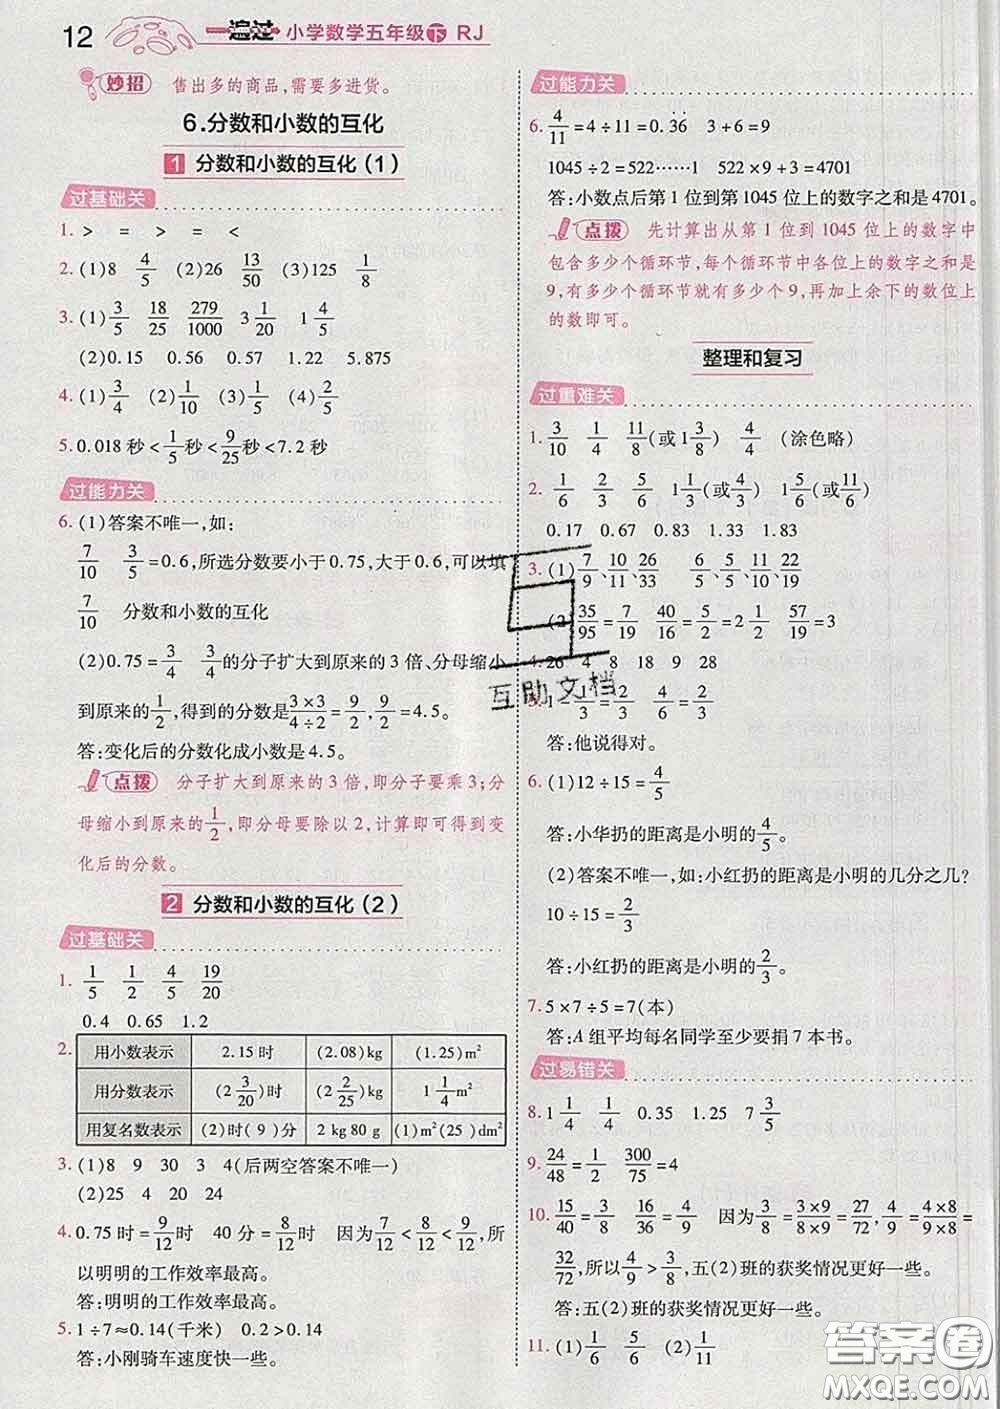 12 一遍过 小学数学五年级 下 RJ
妙招 售出多的商品,需要多进货。
6.分数和小数的互化
1 分数和小数的互化(1)
过基础关
1. > = > = <
2. (1)8 4/5 (2)26 13/50 (3)125 1/8
3. (1)3/5 18/25 279/1000 3 1/20 1 4/5
(2)0.15 0.56 0.57 1.22 5.875
4. (1)3/4 (2)1/10 (3)1/5 (4)4/5
5. 0.018秒<1/5秒<9/25秒<7.2秒
过能力关
6. (1)答案不唯一,如:
7/10 3/5=0.6,所选分数要小于0.75,大于0.6,可以填
7/10 分数和小数的互化
(2)0.75=3/4 3/4的分子扩大到原来的3倍、分母缩小
到原来的1/2,得到的分数是3×3/4÷2=9/2,9/2=4.5。
答:变化后的分数化成小数是4.5。
点拨 分子扩大到原来的3倍,即分子要乘3;分
母缩小到原来的1/2,即分母要除以2,计算即可得到变
化后的分数。
2 分数和小数的互化(2)
过基础关
1. 1/5 1/2 4/5 19/20
0.4 0.65 1.2
2. 用小数表示 2.15时 (2.08)kg (1.25)m²
用分数表示 (2 3/20)时 (2 2/25)kg 1 1/4 m²
用复名数表示 (2)时(9)分 2 kg 80 g (1)m²(25)dm²
3. (1)8 9 30 3 4(后两空答案不唯一)
(2)25 24
4. 0.75时=9/12时 40分=8/12时 因为7/12<8/12<9/12,所
以明明的工作效率最高。
答:明明的工作效率最高。
5. 1÷7≈0.14(千米) 0.2>0.14
答:小刚骑车速度快一些。
过能力关
6. 4/11=4÷11=0.3̇6̇ 3+6=9
1045÷2=522……1 522×9+3=4701
答:小数点后第1位到第1045位上的数字之和是4701。
点拨 先计算出从第1位到1045位上的数字中
包含多少个循环节,每个循环节中各位上的数字之和是
9,有多少个循环节就有多少个9,再加上余下的数位上
的数即可。
整理和复习
过重难关
1. 3/10 1/4 11/8(或1 3/8) 4/4 (涂色略)
2. 1/6 2/3 5/6 1 1/3(或4/3) 1 5/6(或11/6)
0.17 0.67 0.83 1.33 1.83
3. (1)7/9、10/11、26/33 5/6、5/2、11/10、22/19
(2)35/95=7/19 40/16=5/2=2 1/2 57/19=3
4. 26 4 8 18 9 28
5. 1-1/3=2/3 4/6=2/3
答:他说得对。
6. (1)12÷15=4/5
答:小华扔的距离是小明的4/5。
(2)答案不唯一,如:小红扔的距离是小明的几分之几?
10÷15=2/3
答:小红扔的距离是小明的2/3。
7. 5×7÷5=7(本)
答:A组平均每名同学至少要捐7本书。
过易错关
8. 1 1/4 1/4 0.35 1.25 7 3/5
9. 24/48=1/2 300/75=4
10. 15/40=3/8 16/36=4/9 因为3/8=3×9/8×9=27/72,4/9=4×8/9×8=
32/72,所以4/9>3/8,五(2)班的获奖情况更好一些。
答:五(2)班的获奖情况更好一些。
11. (1)1/6 5/6 (2)1/11
互助文档
答案圈
MXQE.COM